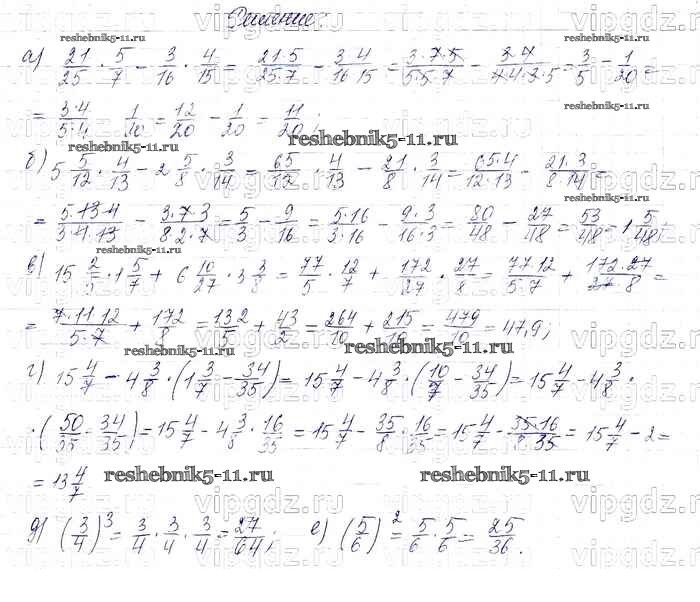 Решение:
а) 21/25 · 5/7 − 3/16 · 4/15 = 21·5/25·7 − 3·4/16·15 = 3·7·5/5·5·7 − = 3/5 − 1/20 =
= 3·4/5·4 1/20 = 12/20 − 1/20 = 11/20;
б) 5 5/12 · 4/13 − 2 5/8 · 3/14 = 65/12 · 4/13 − 21/8 · 3/14 = 65·4/12·13 − 21·3/8·14 =
= 5·13·4/3·4·13 − 3·7·3/8·2·7 = 5/3 − 9/16 = 5·16/3·16 − 9·3/16·3 = 80/48 − 27/48 = 53/48 = 1 5/48;
в) 15 2/5 · 1 5/7 + 6 10/27 · 3 3/8 = 77/5 · 12/7 + 172/27 · 27/8 = 77·12/5·7 + 172·27/27·8 =
= 7·11·12/5·7 + 172/8 = 132/5 + 43/2 = 264/10 + 215/10 = 479/10 = 47,9;
г) 15 4/7 − 4 3/8 · (1 3/7 − 34/35) = 15 4/7 − 4 3/8 · (10/7 − 34/35) = 15 4/7 − 4 3/8 ·
· (50/35 − 34/35) = 15 4/7 − 4 3/8 · 16/35 = 15 4/7 − 35/8 · 16/35 = 15 4/7 − 35·16/8·35 = 15 4/7 − 2 =
= 13 4/7
д) (3/4)³ = 3/4 · 3/4 · 3/4 = 27/64; е) (5/6)² = 5/6 · 5/6 = 25/36.
reshebnik5-11.ru
reshebnik5-11.ru
reshebnik5-11.ru
reshebnik5-11.ru
reshebnik5-11.ru
reshebnik5-11.ru
reshebnik5-11.ru
reshebnik5-11.ru
reshebnik5-11.ru
reshebnik5-11.ru
reshebnik5-11.ru
vipgdz.ru
vipgdz.ru
vipgdz.ru